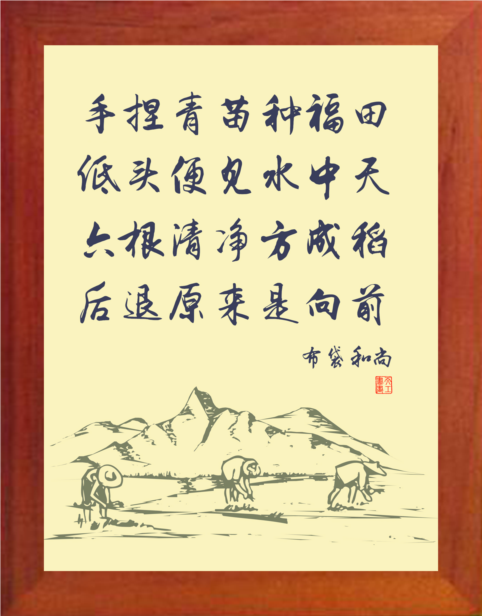 手捏青苗种福田
低头便见水中天
六根清净方成稻
后退原来是向前
布袋和尚